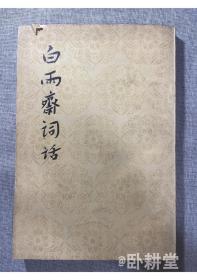 白雨齋词话
@卧耕堂